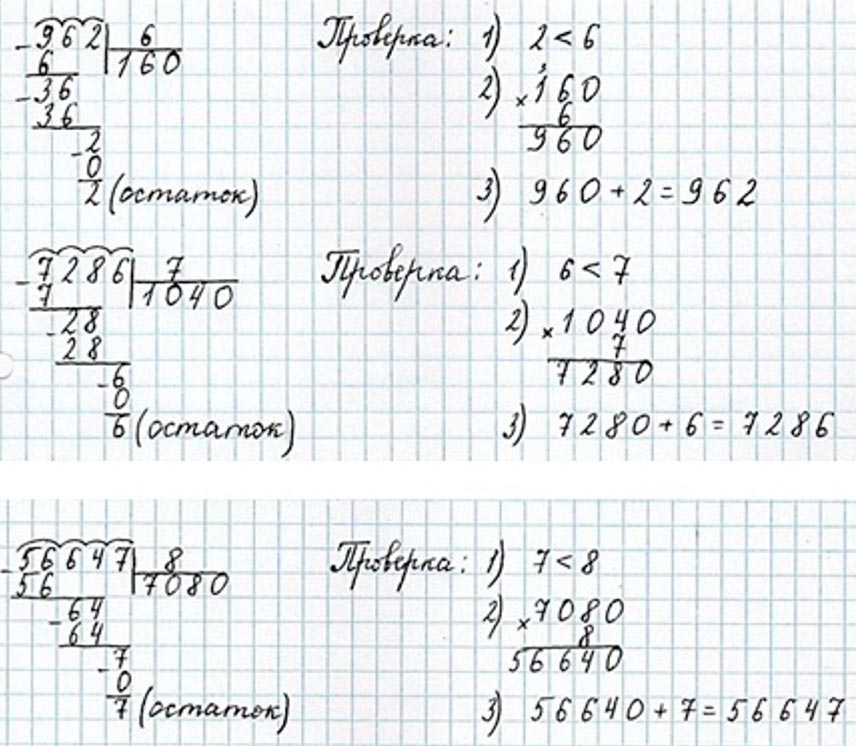 -962 6 Проверка: 1) 2 < 6
6 160
-36 2) ×160
36 6
-2 960
0
2 (остаток) 3) 960 + 2 = 962
-7286 7 Проверка: 1) 6 < 7
7 1040
-28 2) ×1040
28 7
-6 7280
0
6 (остаток) 3) 7280 + 6 = 7286
-56647 8 Проверка: 1) 7 < 8
56 7080
-64 2) ×7080
64 8
-7 56640
0
7 (остаток) 3) 56640 + 7 = 56647